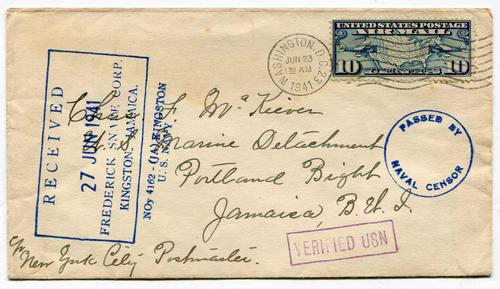 UNITED STATES POSTAGE
AIR MAIL
10 10
WASHINGTON, D.C. 23
JUN 23
12 AM
1941
RECEIVED
27 JUN 1941
FREDERICK SNARE CORP.
KINGSTON, JAMAICA.
NOy 4162-(JA) KINGSTON
U.S. NAVY
Chas F. McKiever
U.S. Marine Detachment
Portland Bight
Jamaica, B.W.I.
c/o
New York City Postmaster.
PASSED BY
NAVAL CENSOR
VERIFIED USN